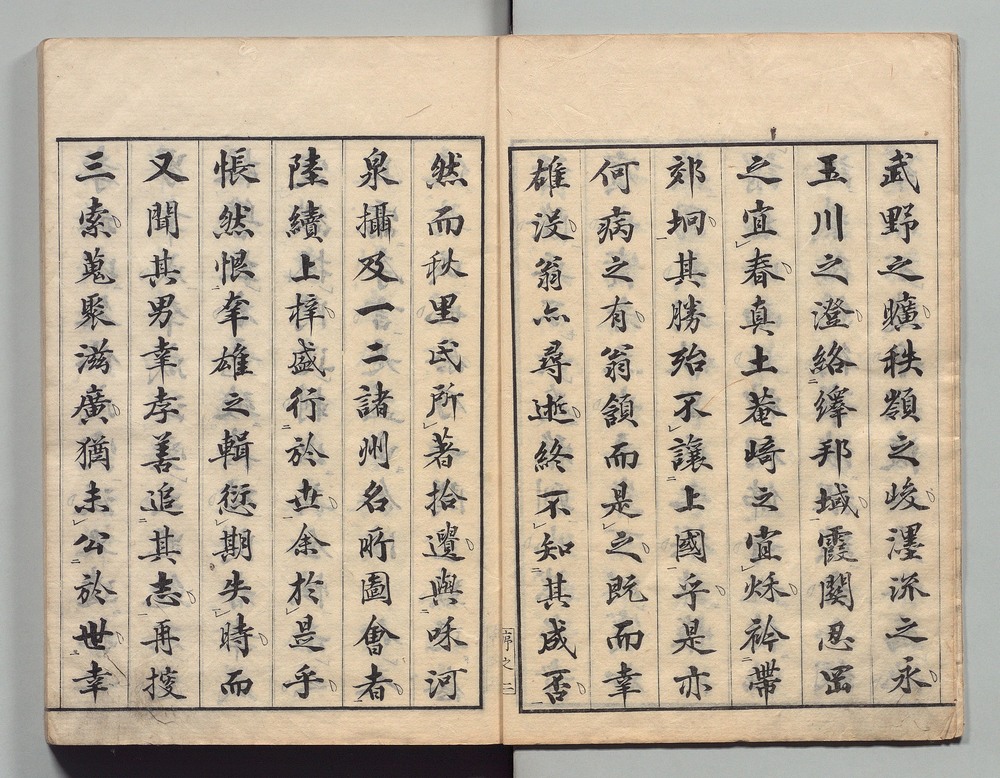 武野之曠秩嶺之峻濹流之永
玉川之澄絡繹邦域霞関忍岡
之宜春真土菴崎之宜秌衿帶
郊坰其勝殆不讓上國乎是亦
何病之有翁頷而是之既而幸
雄没翁亦尋逝終不知其成否
序之三
然而秋里氏所著拾遺與咊河
泉攝及一二諸州名所圖會者
陸續上梓盛行於世余於是乎
悵然恨幸雄之輯愆期失時而
又聞其男幸孝善追其志再搜
三索蒐聚滋廣猶未公於世幸